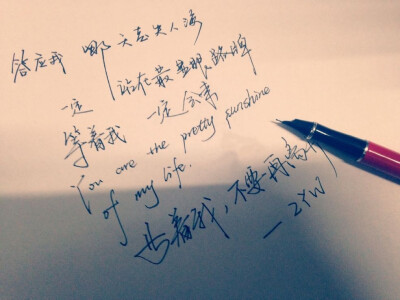 答应我 哪天走失人海
一定 站在最显眼路牌
等着我 一定会来
You are the pretty sunshine
of my life.
着我，不要再离开
—ZYW